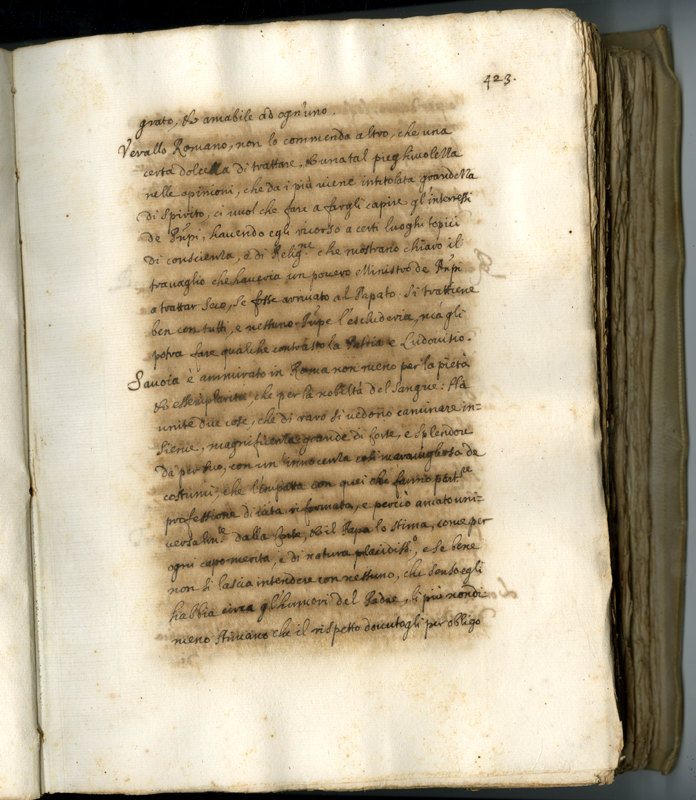 423.
grato, & amabile ad ogn'uno.
Verallo Romano, non lo commenda altro, che una
certa dolcezza di trattare, & una tal pieghevolezza
nelle opinioni, che da i più viene intitolata grandezza
di spirito, ci vuol che fare a fargli capire gl'interessi
de Prñpi, havendo egli ricorso a certi luoghi topici
di conscienza, e di Relig.ne che mostrano chiaro il
travaglio che haveria un povero Ministro de Prñpi
a trattar seco, se fosse arrivato al Papato. Si trattiene
ben con tutti, e nessuno Prñpe l'escluderia, ne à gli
potra fare qualche contrasto la Patria e Ludovisio.
Savoia è ammirato in Roma non meno per la pietà
& essemplarità che per la nobiltà del sangue: Ha
unite due cose, che di raro si vedono caminare in=
sieme, magnificenza grande di Corte, e splendore
da par suo, con un innocenza così maravigliosa de
costumi, che l'impatta con quei che fanno part.re
professione di vita riformata, e perciò amato uni=
versalm.te dalla Corte, & il Papa lo stima, come per
ogni capo merita, è di natura placidiss.o, e se bene
non si lascia intendere con nessuno, che senso egli
habbia circa gl'humori del Padre, li più nondi
meno stimano che il rispetto dovutogli per obligo